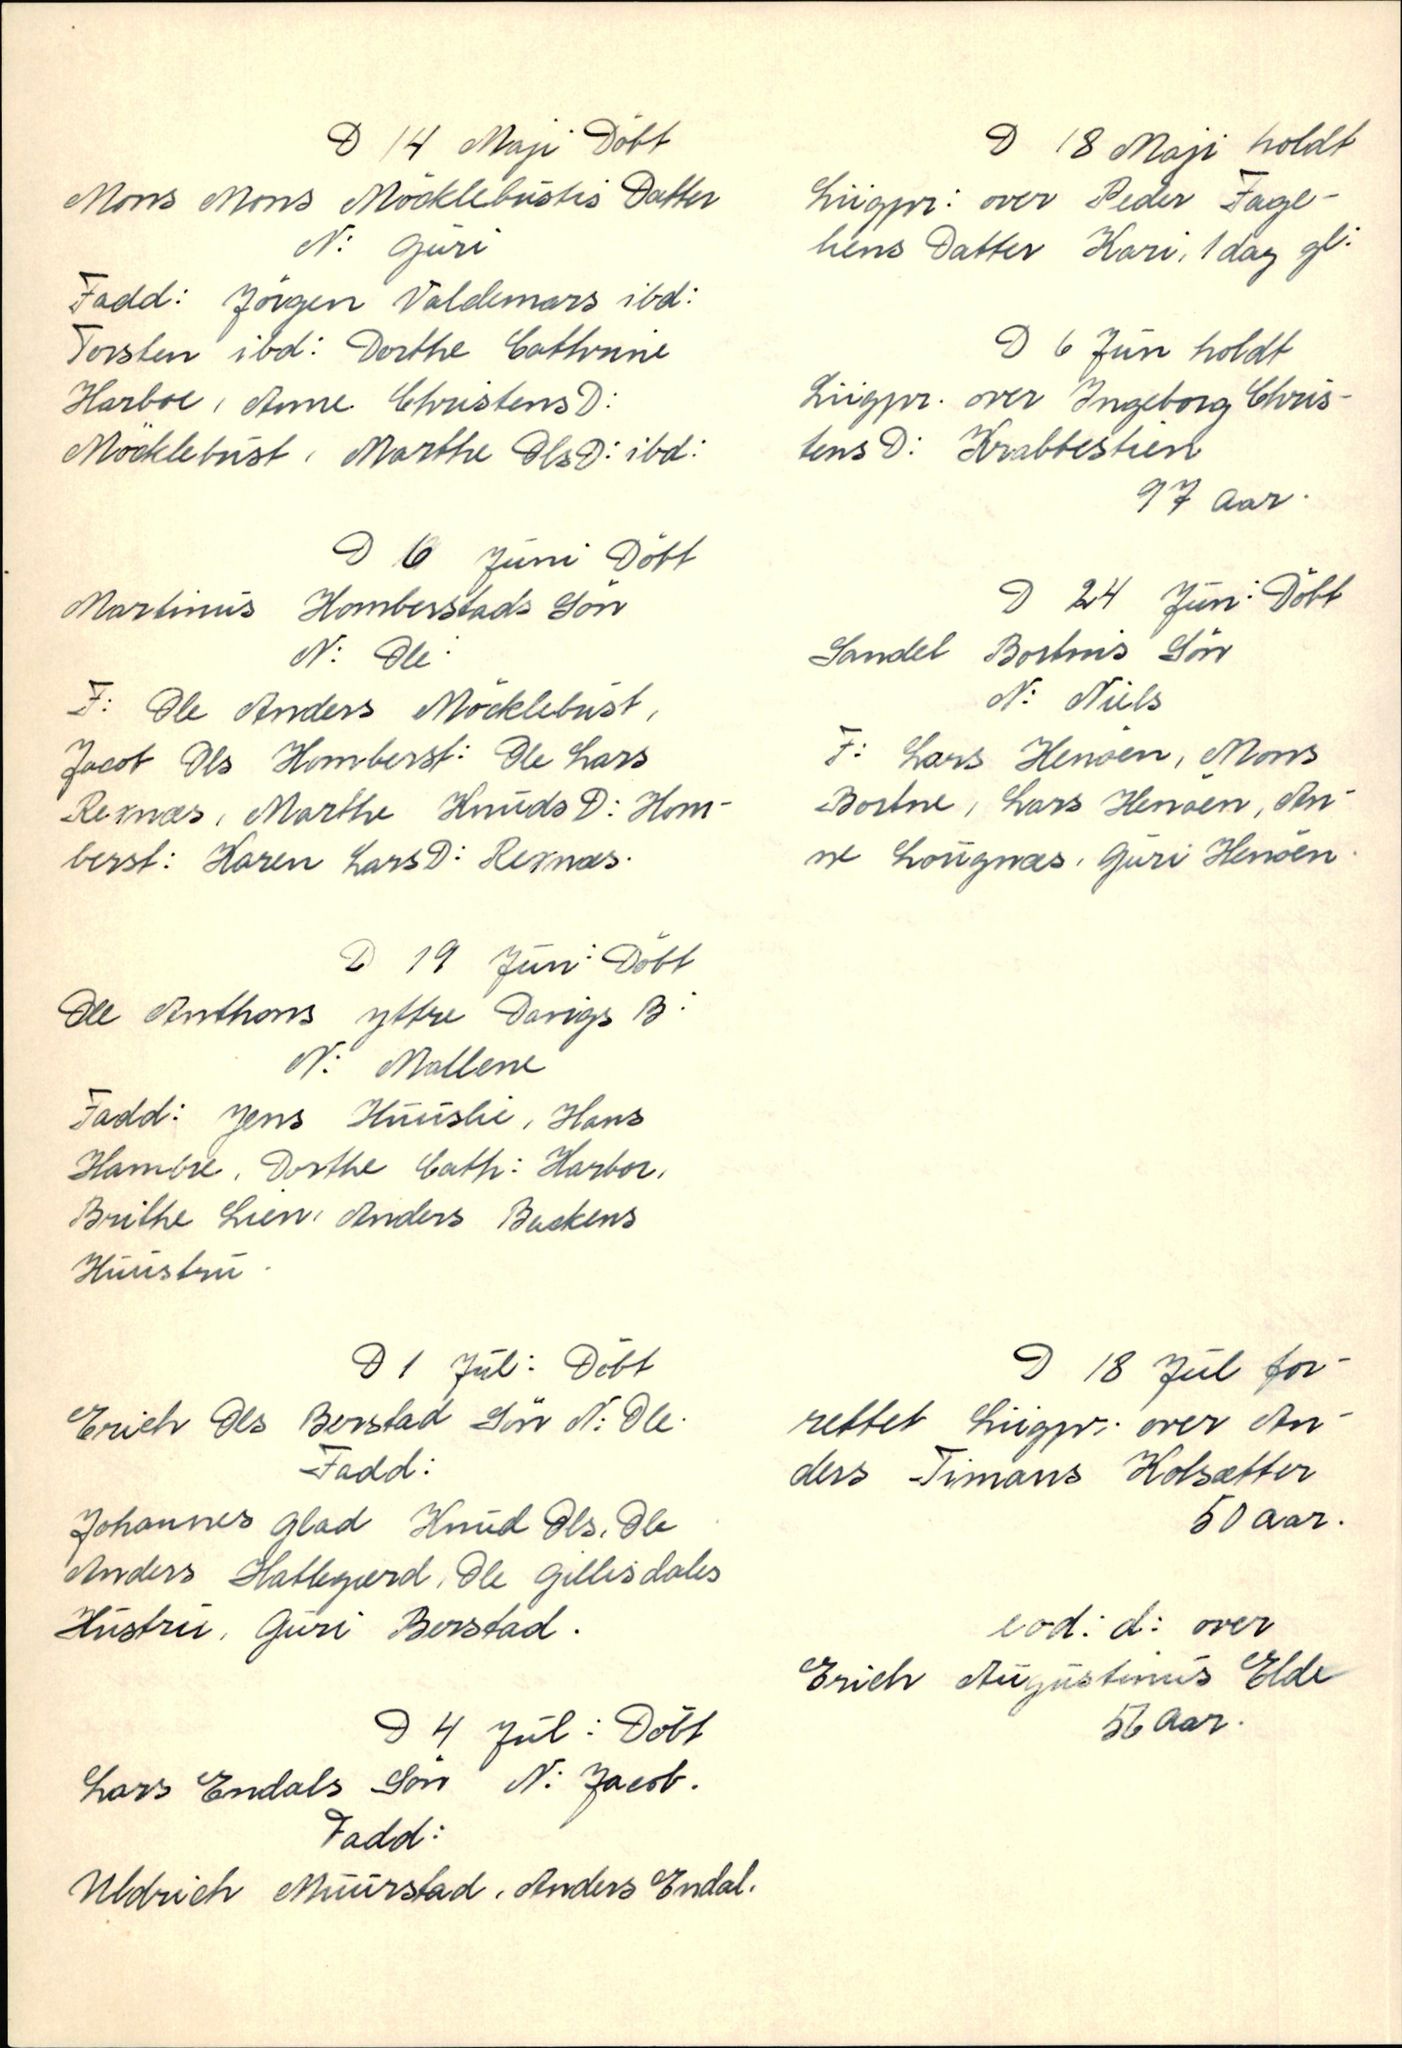 D 14 Maji Döbt
Mons Mons Möcklebustis Datter
N: Guri
Fadd: Jörgen Valdemars ibd:
Torsten ibd: Dorthe Cathrine
Harboe, Anne ChristensD:
Möcklebust, Marthe OlsD: ibd:
D 6 Juni Döbt
Martinus Homberstads Sön
N: Ole
F: Ole Anders Möcklebust,
Jacob Ols Homberst: Ole Lars
Rexnæs, Marthe KnudsD: Hom-
berst: Karen LarsD: Rexnæs.
D 19 Jun: Döbt
Ole Anthons yttre Davigs B:
N: Mallene
Fadd: Jens Huuslie, Hans
Hambre, Dorthe Cath: Harboe,
Brithe Lien, Anders Backens
Huustru.
D 1 Jul: Döbt
Erich Ols Berstad Sön N: Ole.
Fadd:
Johannes Glad Knud Ols, Ole
Anders Hattegierd, Ole Gillisdales
Hustru, Guri Berstad.
D 4 Jul: Döbt
Lars Endals Sön N: Jacob.
Fadd:
Uldrich Muurstad, Anders Endal.
D 18 Maji holdt
Liigpr: over Peder Fage-
liens Datter Kari, 1 dag gl:
D 6 Jun holdt
Liigpr. over Ingeborg Chris-
tensD: Krabbestien
97 aar.
D 24 Jun: Döbt
Sandel Bortnis Sön
N: Niels
F: Lars Henöen, Mons
Bortne, Lars Henöen, An-
ne Lougnæs, Guri Henöen.
D 18 Jul for-
rettet Liigpr. over An-
ders Timans Kolsætter
50 aar.
eod: d: over
Erich Augustinus Elde
56 aar.